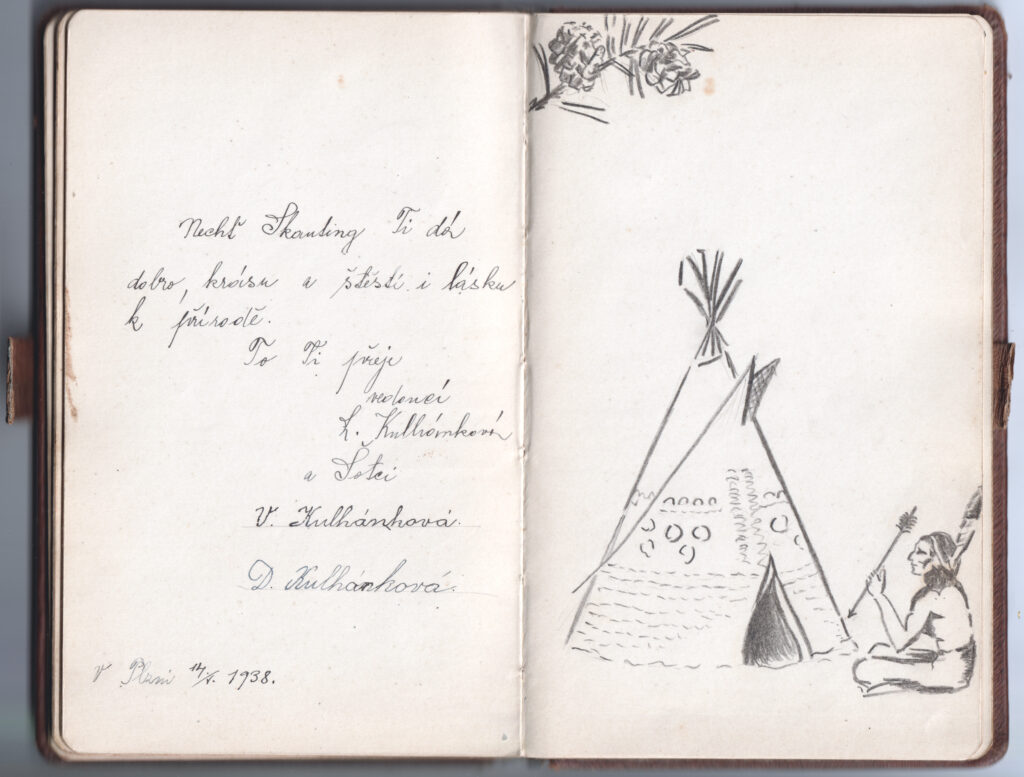 Nechť Skauting Ti dá
dobro, krásu a štěstí i lásku
k přírodě.
To Ti přeje
vedoucí
L. Kulhánková
a Šotci
V. Kulhánková.
D. Kulhánková.
V Plzni 14/V. 1938.